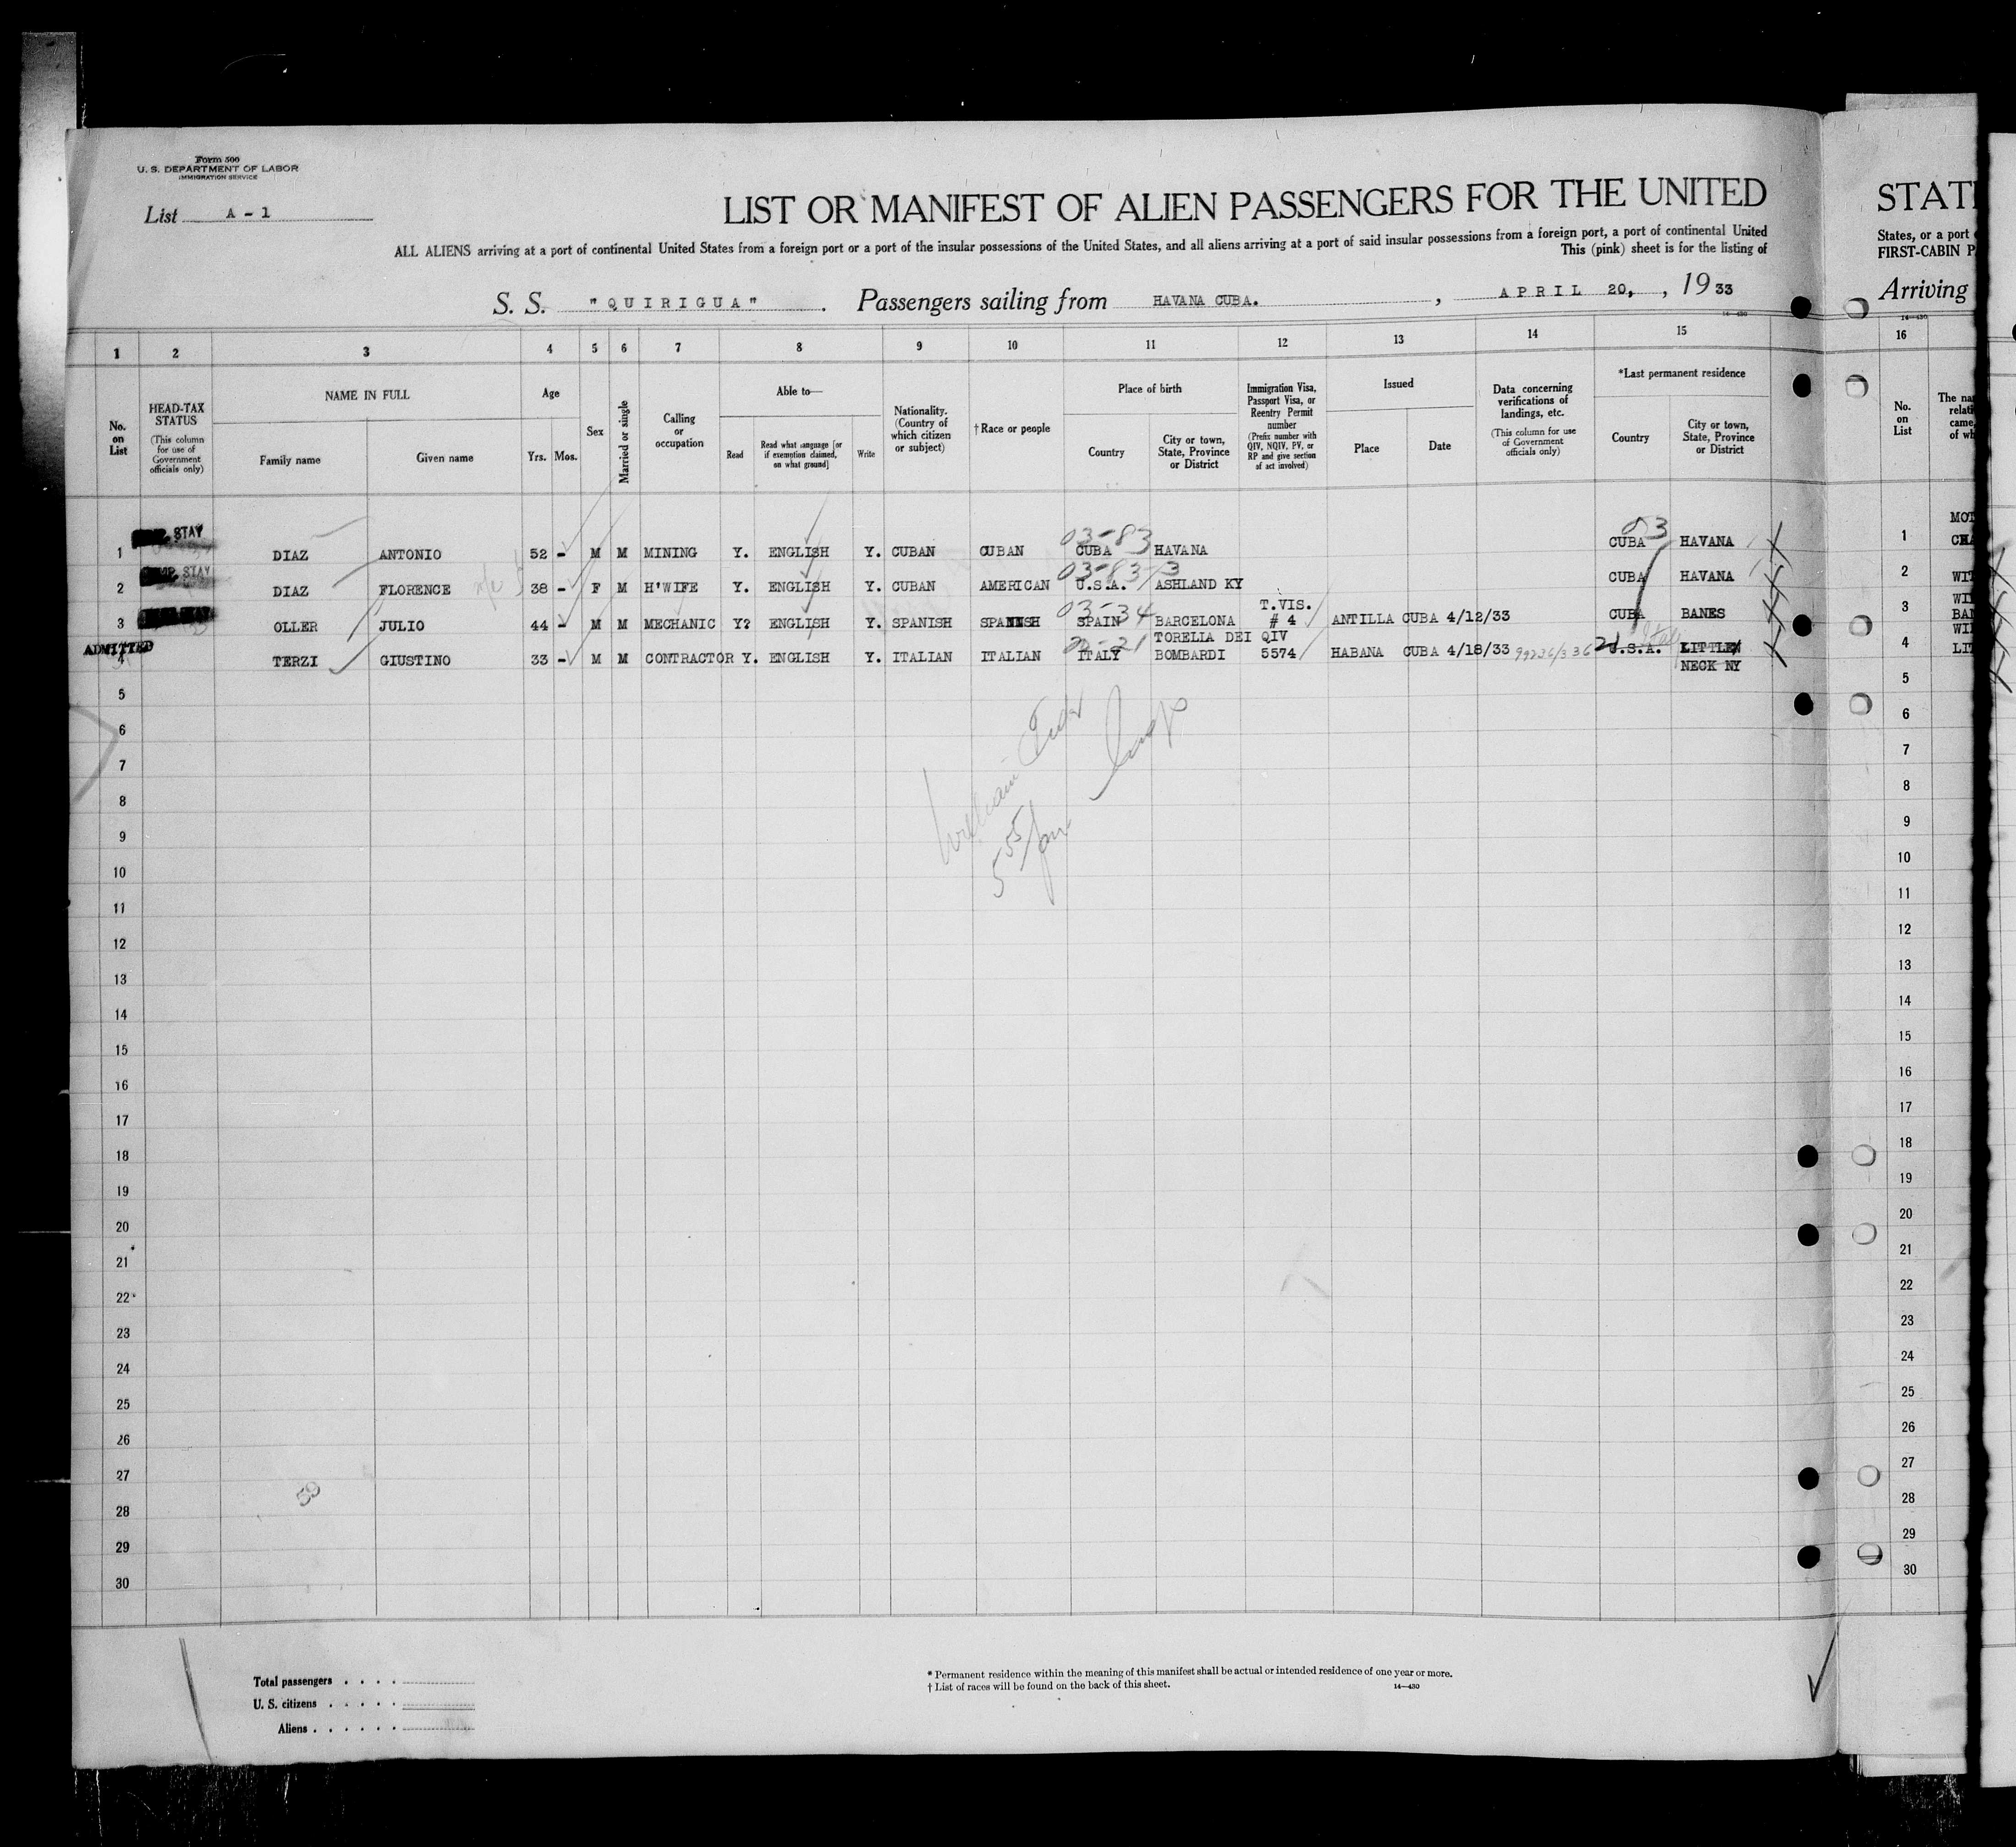 Form 500
U. S. DEPARTMENT OF LABOR
IMMIGRATION SERVICE
List A - 1
LIST OR MANIFEST OF ALIEN PASSENGERS FOR THE UNITED
ALL ALIENS arriving at a port of continental United States from a foreign port or a port of the insular possessions of the United States, and all aliens arriving at a port of said insular possessions from a foreign port, a port of continental United
This (pink) sheet is for the listing of
S. S. "QUIRIGUA". Passengers sailing from HAVANA CUBA. , APRIL 20, , 19 33
14—430
1 2 3 4 5 6 7 8 9 10 11 12 13 14 15
No. on List
HEAD-TAX STATUS (This column for use of Government officials only)
NAME IN FULL
Family name
Given name
Age
Yrs. Mos.
Sex
Married or single
Calling or occupation
Able to—
Read
Read what language [or if exemption claimed, on what ground]
Write
Nationality. (Country of which citizen or subject)
† Race or people
Place of birth
Country
City or town, State, Province or District
Immigration Visa, Passport Visa, or Reentry Permit number (Prefix number with QIV, NQIV, PV, or RP and give section of act involved)
Issued
Place
Date
Data concerning verifications of landings, etc. (This column for use of Government officials only)
*Last permanent residence
Country
City or town, State, Province or District
STAY
03-83
53
1 DIAZ ANTONIO 52 - M M MINING Y. ENGLISH Y. CUBAN CUBAN CUBA HAVANA CUBA HAVANA
STAY
03-83-3
2 DIAZ FLORENCE 38 - F M H'WIFE Y. ENGLISH Y. CUBAN AMERICAN U.S.A. ASHLAND KY CUBA HAVANA
03-34 T.VIS.
3 OLLER JULIO 44 - M M MECHANIC Y? ENGLISH Y. SPANISH SPANISH SPAIN BARCELONA # 4 ANTILLA CUBA 4/12/33 CUBA BANES
ADMITTED
TORELIA DEI QIV
4 TERZI GIUSTINO 33 - M M CONTRACTOR Y. ENGLISH Y. ITALIAN ITALIAN ITALY BOMBARDI 5574 HABANA CUBA 4/18/33 99236/336 21 U.S.A. LITTLE
NECK NY
5
6
7
8
9
10
11
12
13
14
15
16
17
18
19
20
21
22
23
24
25
26
27
28
29
30
William
5 55/pm
59
Total passengers . . . .
U. S. citizens . . . . .
Aliens . . . . . .
* Permanent residence within the meaning of this manifest shall be actual or intended residence of one year or more.
† List of races will be found on the back of this sheet.
14—430
STATE
States, or a port
FIRST-CABIN P
Arriving
14—430
16
No. on List
The na
relati
came,
of wh
1
2
3
4
5
6
7
8
9
10
11
12
13
14
15
16
17
18
19
20
21
22
23
24
25
26
27
28
29
30